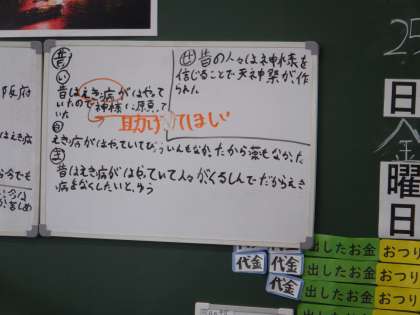 昔
い
昔はえき病がはやって
いたので神様に原京して
いた
助けてほしい
昔の人々は神様を
信じることで天神祭が作
られた
えき病がはやっていてびょういんもなかったから薬もなかった
ま
昔はえき病がはやっていて人々がくるしんでだからえき
病をなくしたいとゆう
えき病
25
日
金
曜
日
代金
代金
代金
代金
出したお金
おつり
出したお金
おつり
出したお金
おつ
出したお金
おつ